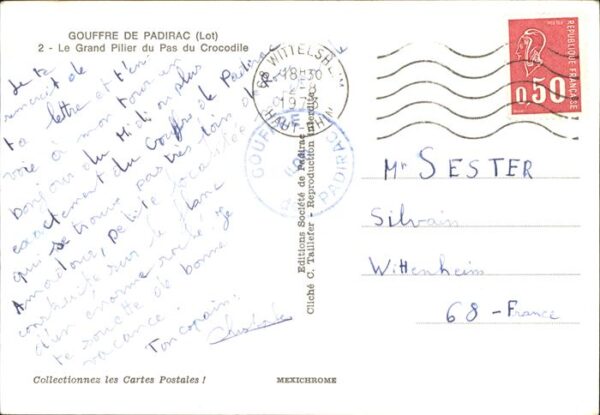 GOUFFRE DE PADIRAC (Lot)
2 - Le Grand Pilier du Pas du Crocodile
Je te
remercit de
ta lettre et t'en
voie à mon tour un
bonjour du Midi ou plus
exactement du Gouffre de Padirac
qui se trouve pas très loin de
Amadour, petite
construite sur le flanc
d'un énorme roché. Je
te souette de bonne
vacance.
Ton copain:
Collectionnez les Cartes Postales !
MEXICHROME
Editions Société de Padirac
Cliché C. Taillefer - Reproduction interdite
68 WITTELSHEIM
18H30
HAUT-RHIN
GOUFFRE DE PADIRAC
REPUBLIQUE FRANCAISE
0,50
POSTES
Mr SESTER
Silvain
Wittenheim
68-France